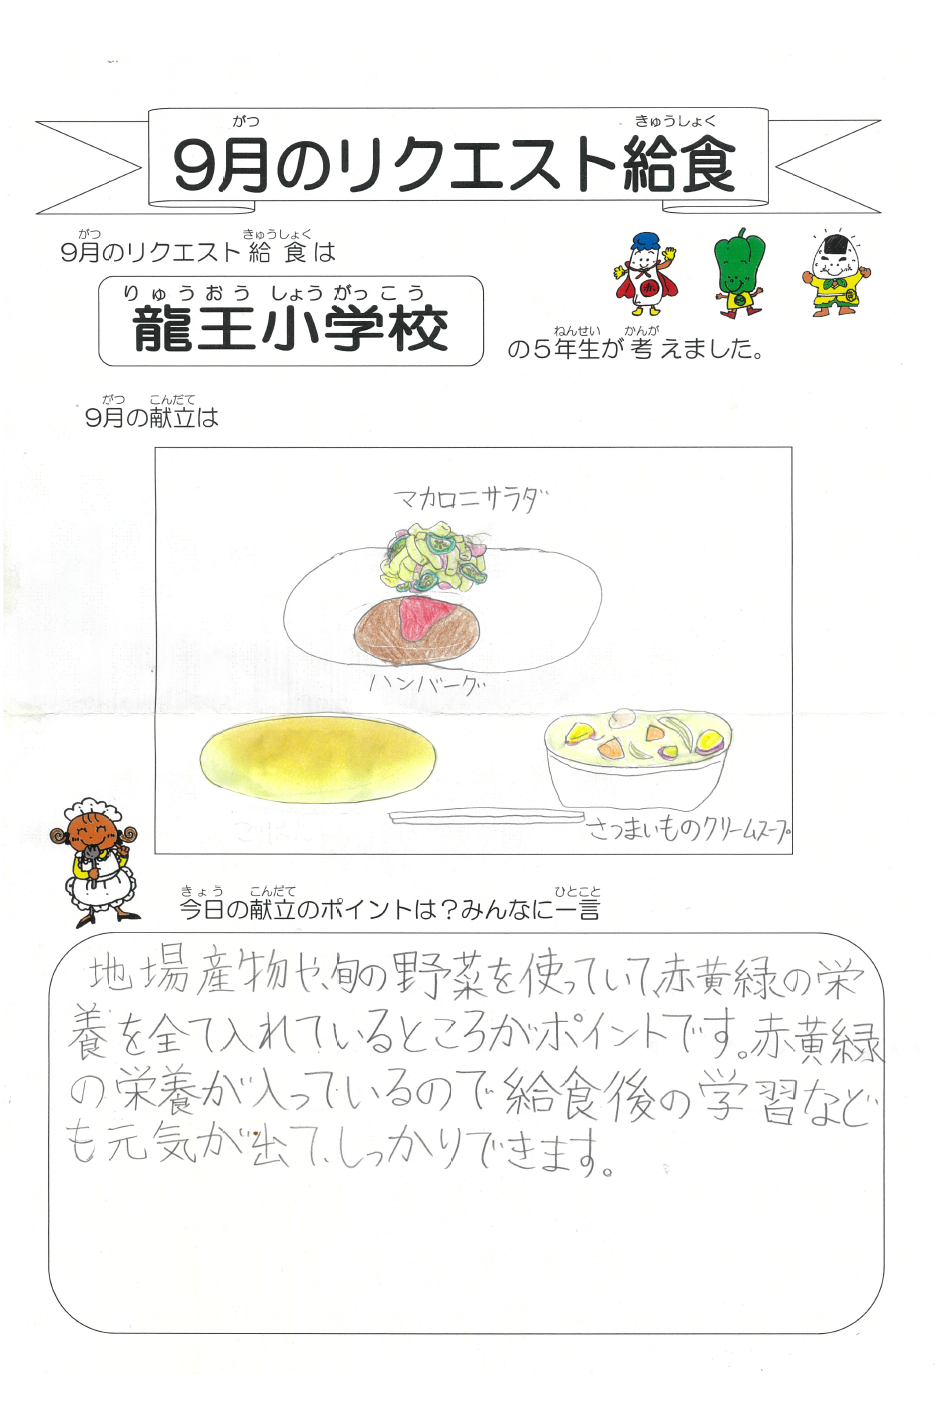 がつ きゅうしょく
9月のリクエスト給食
がつ きゅうしょく
9月のリクエスト給食は
りゅうおうしょうがっこう
龍王小学校
ねんせい かんが
の5年生が考えました。
がつ こんだて
9月の献立は
マカロニサラダ
ハンバーグ
さつまいものクリームスープ
きょう こんだて ひとこと
今日の献立のポイントは?みんなに一言
地場産物や、旬の野菜を使っていて、赤黄緑の栄
養を全て入れているところがポイントです。赤黄緑
の栄養が入っているので給食後の学習など
も元気が出て、しっかりできます。